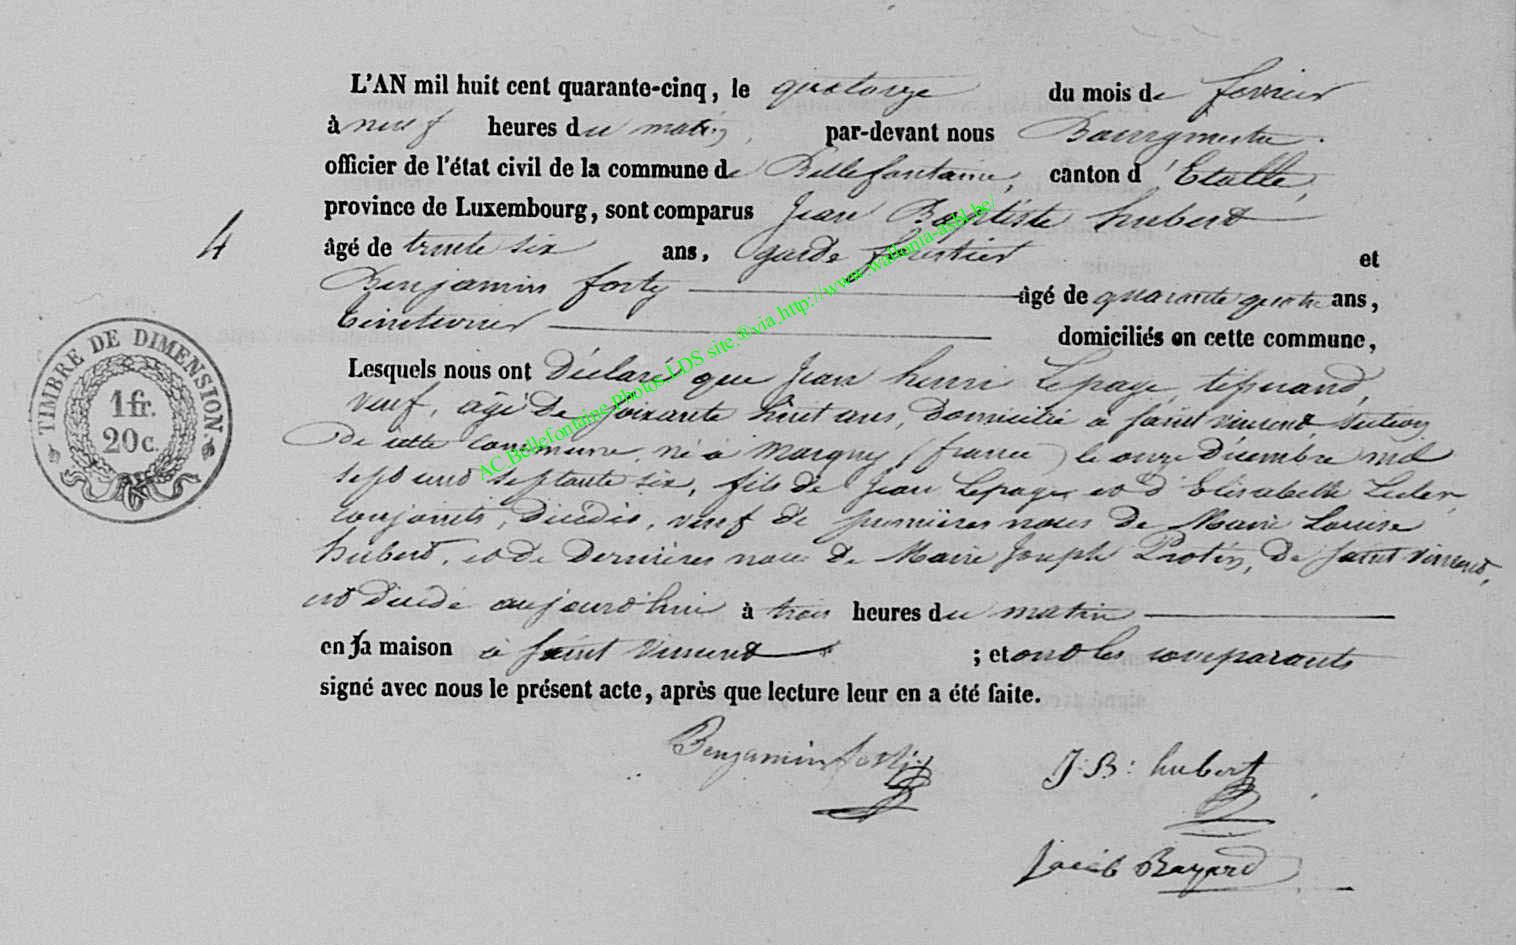 L'AN mil huit cent quarante-cinq, le quatorze du mois de fevrier
à neuf heures du matin, par-devant nous Bourgmestre
officier de l'état civil de la commune de Bellefontaine, canton d'Etalle,
province de Luxembourg, sont comparus Jean Baptiste hubert
4
âgé de trente six ans, garde forestier et
Benjamin forty âgé de quarante quatre ans,
domiliés en cette commune,
Lesquels nous ont déclaré que Jean henri Lepage, tisserand,
veuf, âgé de soixante huit ans, domicilié a saint vincent, section
de cette commune, né à Margny (france) le onze décembre mil
sept cent septante six, fils de Jean Lepage et d'Elisabette Lecler,
conjoints, décédés, veuf de premières noces de Marie Louise
hubert, et de dernières noces de Marie Joseph Protin, de saint vincent,
est décédé aujourd'hui à trois heures du matin
en sa maison à saint vincent ; et ont les comparants
signé avec nous le présent acte, après que lecture leur en a été faite.
Benjamin
J: B: hubert
Jacob Bayard
TIMBRE DE DIMENSION.
1 fr.
20 c.
AC Bellefontaine Photos LDS site ®via http://www.wallonia-asbl.be/